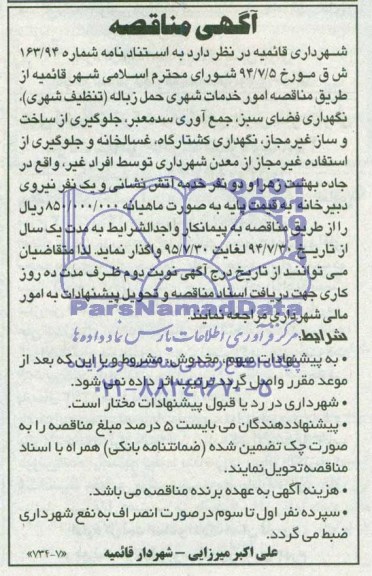 آگهی مناقصه
شهرداری قائمیه در نظر دارد به استناد نامه شماره ۱۶۳/۹۴
ش ق مورخ ۹۴/۷/۵ شورای محترم اسلامی شهر قائمیه از
طریق مناقصه امور خدمات شهری حمل زباله (تنظیف شهری)،
نگهداری فضای سبز، جمع آوری سدمعبر، جلوگیری از ساخت
و ساز غیرمجاز، نگهداری کشتارگاه، غسالخانه و جلوگیری از
استفاده غیرمجاز از معدن شهرداری توسط افراد غیر، واقع در
جاده بهشت زهرا و دو نفر خدمه آتش نشانی و یک نفر نیروی
دبیرخانه به قیمت پایه به صورت ماهیانه ۸۵۰/۰۰۰/۰۰۰ ریال
را از طریق مناقصه به پیمانکار واجدالشرایط به مدت یک سال
از تاریخ ۹۴/۷/۳۰ لغایت ۹۵/۷/۳۰ واگذار نماید. لذا متقاضیان
می توانند از تاریخ درج آگهی نوبت دوم ظرف مدت ده روز
کاری جهت دریافت اسناد مناقصه و تحویل پیشنهادات به امور
مالی شهرداری مراجعه نمایند.
ParsNamadData
مرکز فرآوری اطلاعات پارس نماد داده ها
شرایط:
• به پیشنهادات مبهم، مخدوش، مشروط و یا این که بعد از
موعد مقرر واصل گردد ترتیب اثر داده نمی شود.
پایگاه اطلاع رسانی مناقصه و مزایده
۰۲۱-۸۸۳۴۹۶۷۰-۵
• شهرداری در رد یا قبول پیشنهادات مختار است.
• پیشنهاددهندگان می بایست ۵ درصد مبلغ مناقصه را به
صورت چک تضمین شده (ضمانتنامه بانکی) همراه با اسناد
مناقصه تحویل نمایند.
• هزینه آگهی به عهده برنده مناقصه می باشد.
• سپرده نفر اول تا سوم درصورت انصراف به نفع شهرداری
ضبط می گردد.
علی اکبر میرزایی – شهردار قائمیه «۷۳۴-۷»